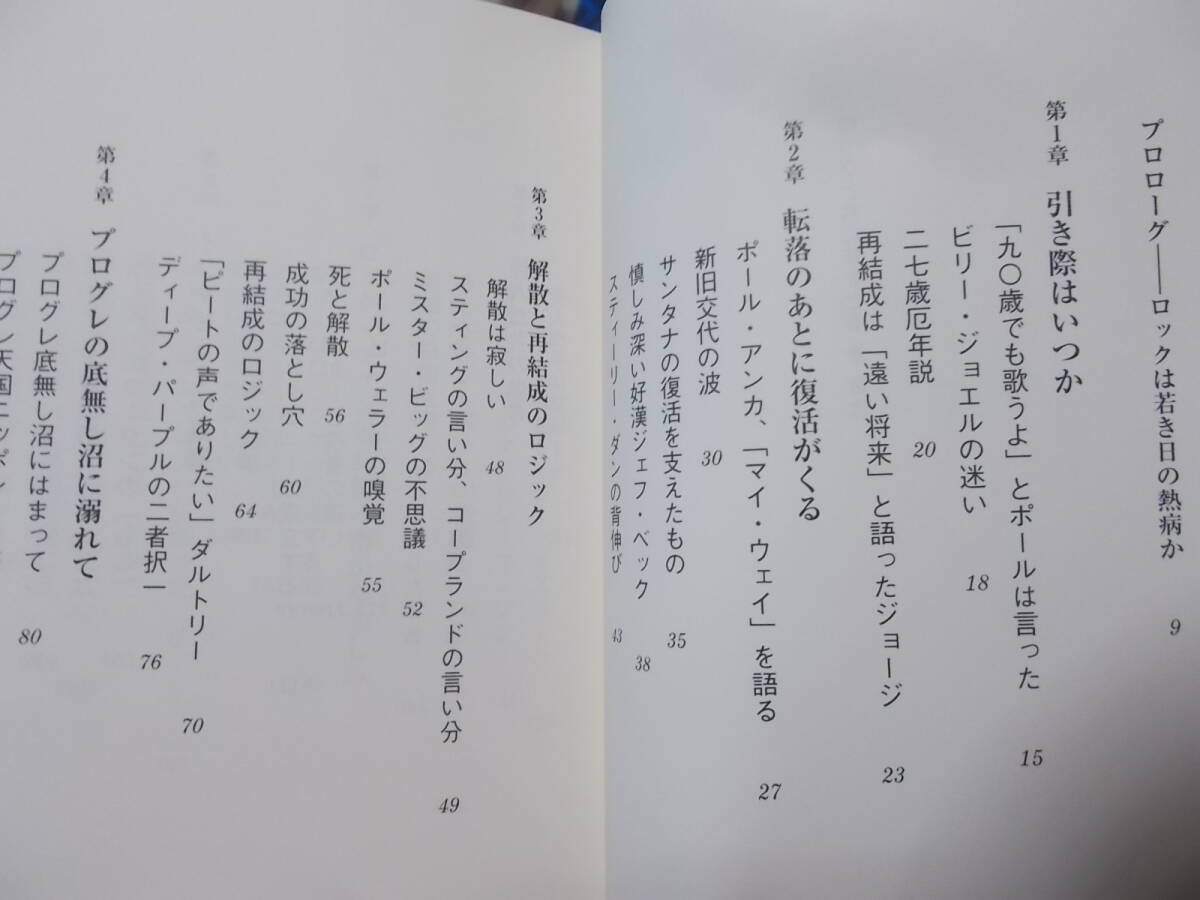 プロローグ――ロックは若き日の熱病か 9
第1章 引き際はいつか
「九〇歳でも歌うよ」とポールは言った 15
ビリー・ジョエルの迷い 18
二七歳厄年説 20
再結成は「遠い将来」と語ったジョージ 23
第2章 転落のあとに復活がくる
ポール・アンカ、「マイ・ウェイ」を語る 27
新旧交代の波 30
サンタナの復活を支えたもの 35
慎しみ深い好漢ジェフ・ベック 38
スティーリー・ダンの背伸び 43
第3章 解散と再結成のロジック
解散は寂しい 48
スティングの言い分、コープランドの言い分 49
ミスター・ビッグの不思議 52
ポール・ウェラーの嗅覚 55
死と解散 56
成功の落とし穴 60
再結成のロジック 64
「ピートの声でありたい」ダルトリー 70
ディープ・パープルの二者択一 76
第4章 プログレの底無し沼に溺れて
プログレ底無し沼にはまって 80
プログレ天国ニッポン